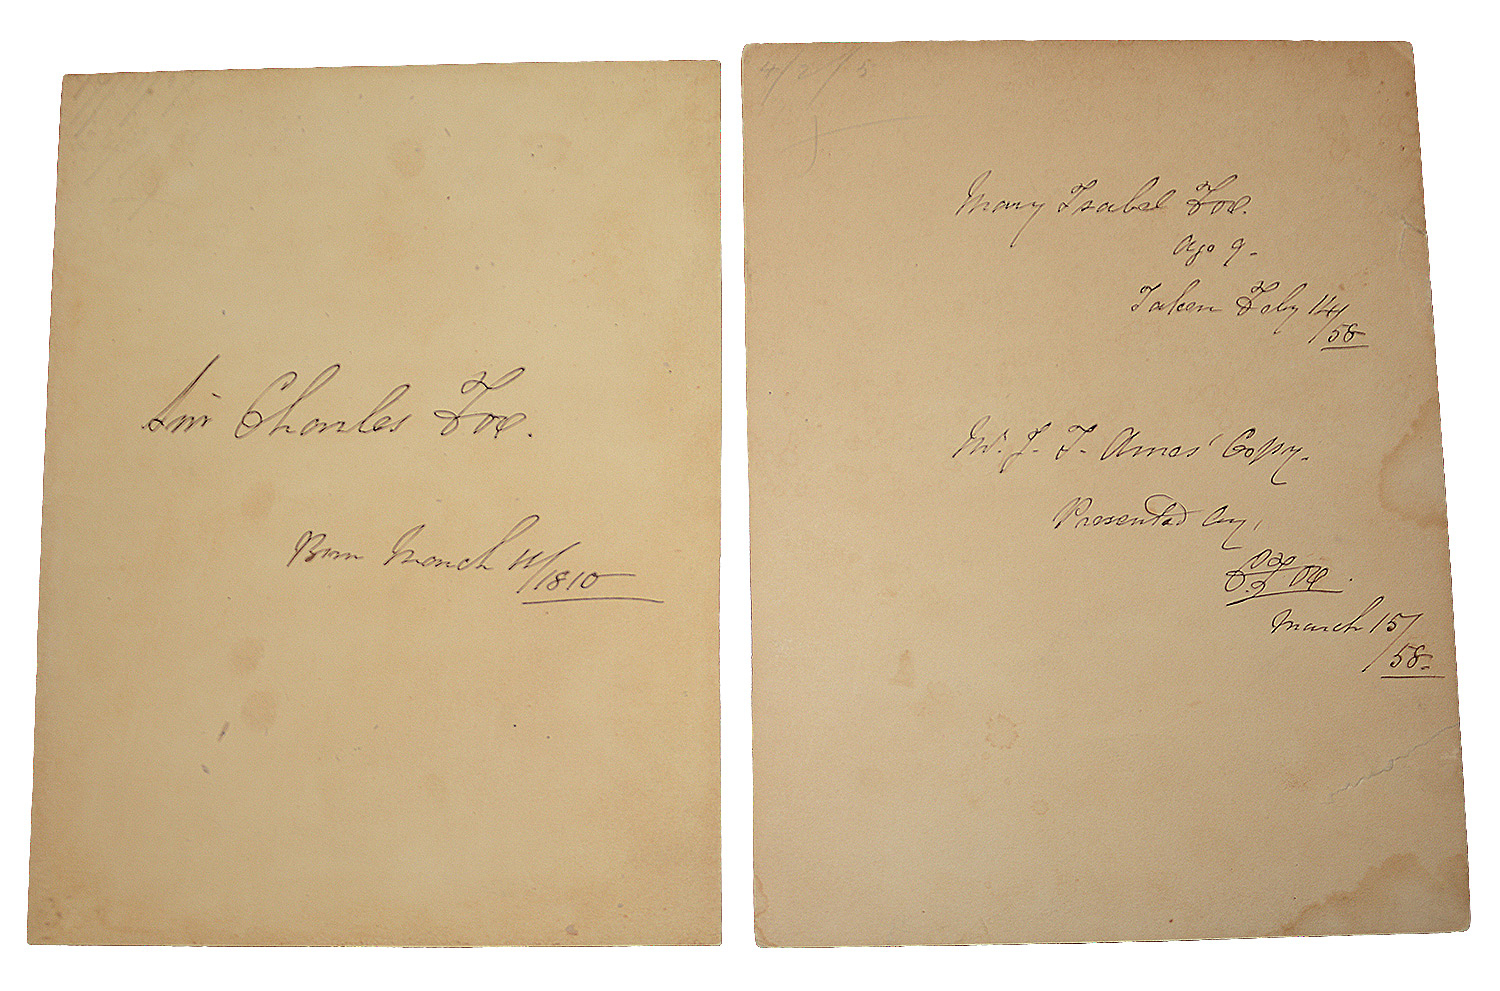 Sir Charles Fox.
Born March 11/1810
4/2/5
Mary Isabel Fox.
Age 9.
Taken Feby 14/58
Mr. J. T. Ames' Copy.
Presented by,
March 15/58.